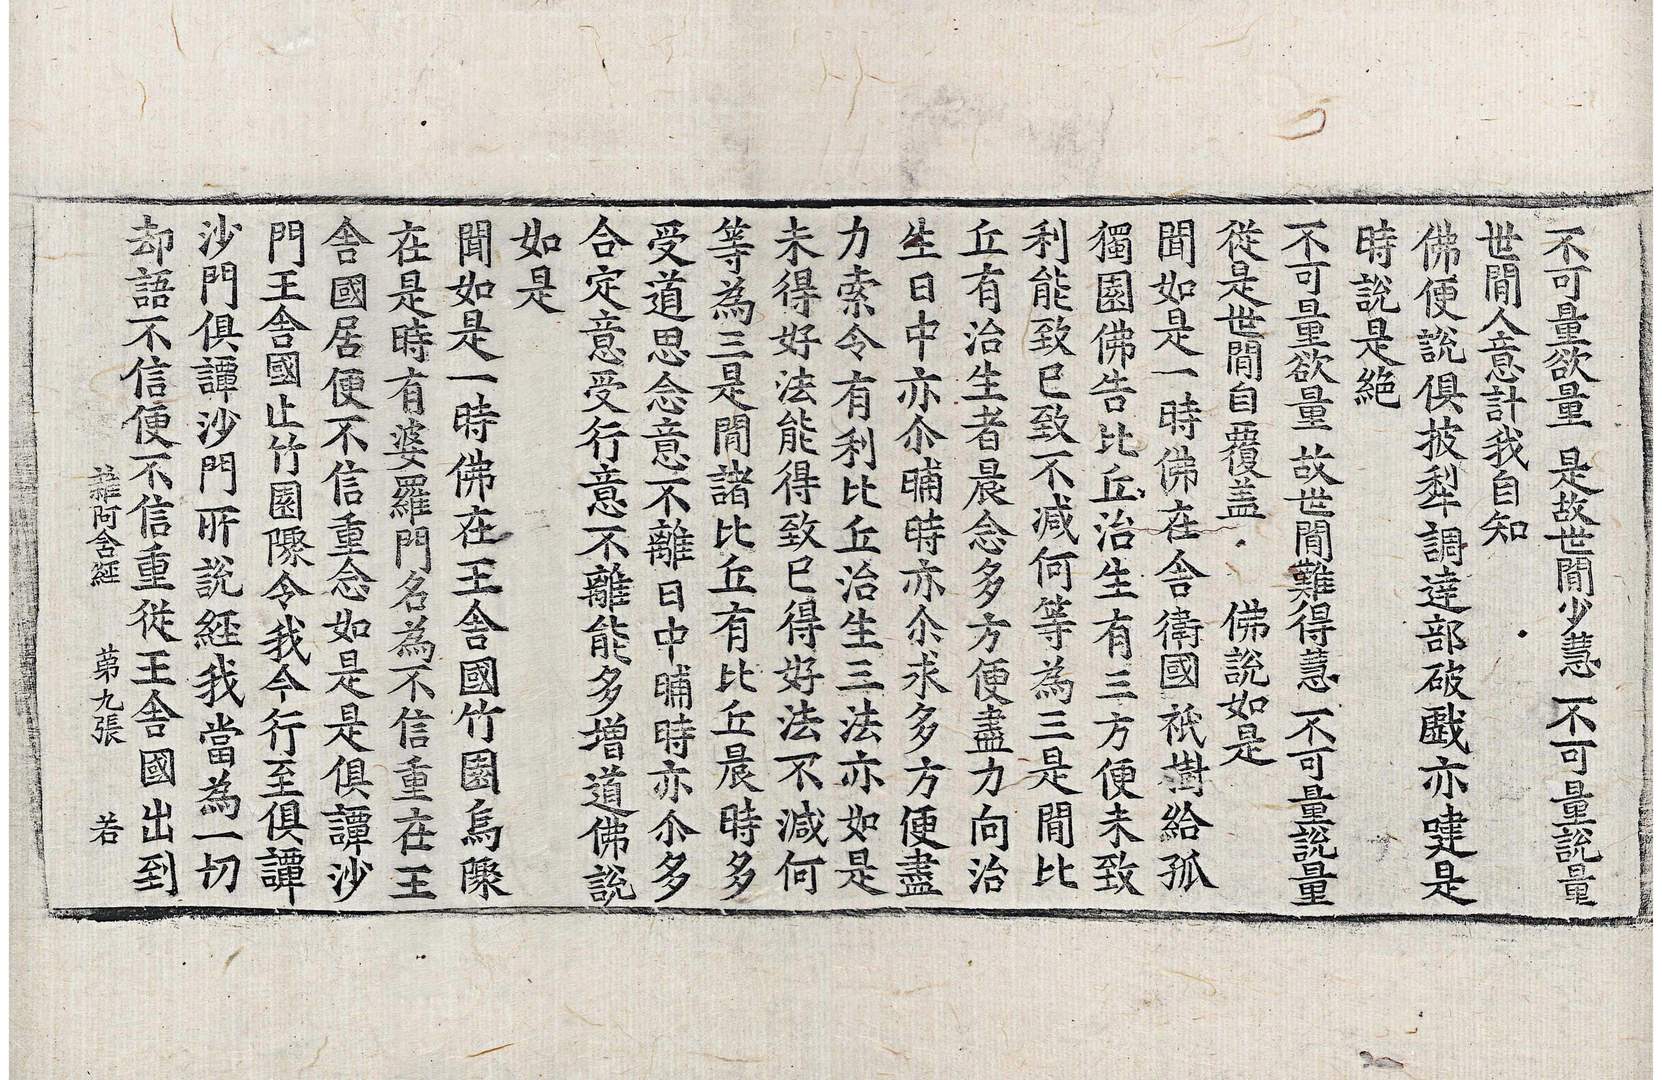 不可量欲量是故世間少慧不可量說量
世間人意計我自知
佛便說俱披犁調達部破戲亦嗹是
時說是絕
不可量欲量故世間難得慧不可量說量
從是世間自覆盖佛說如是
聞如是一時佛在舍衛國祇樹給孤
獨園佛告比丘治生有三方便未致
利能致已致不減何等為三是間比
丘有治生者晨念多方便盡力向治
生日中亦尒晡時亦尒求多方便盡
力索令有利比丘治生三法亦如是
未得好法能得致已得好法不減何
等為三是間諸比丘有比丘晨時多
受道思念意不離日中晡時亦尒多
合定意受行意不離能多增道佛說
如是
聞如是一時佛在王舍國竹園烏隟
在是時有婆羅門名為不信重在王
舍國居便不信重念如是是俱譚沙
門王舍國止竹園隟令我今行至俱譚
沙門俱譚沙門所說經我當為一切
却語不信便不信重從王舍國出到
雜阿含經 苐九張 若